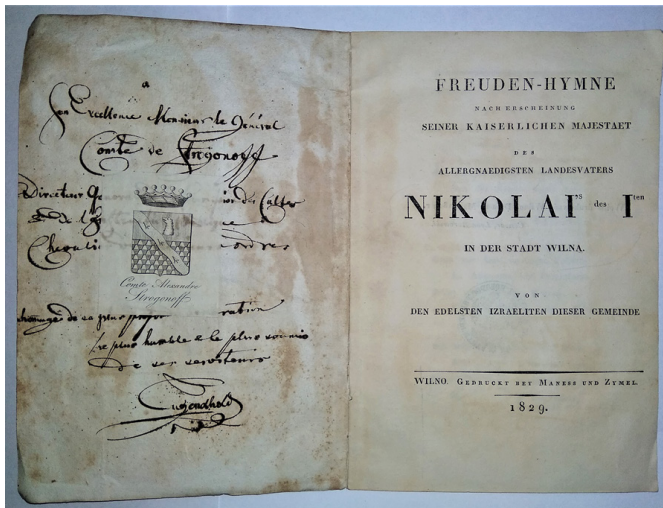 a
Son Excellence Monsieur le Général
Comte de Strogonoff
Directeur
de
Comte Alexandre
Strogonoff
hommage de sa plus
le plus humble & le plus soumis
de ses serviteurs
Tugendhold
FREUDEN-HYMNE
NACH ERSCHEINUNG
SEINER KAISERLICHEN MAJESTAET
DES
ALLERGNAEDIGSTEN LANDESVATERS
NIKOLAI'S des Iten
IN DER STADT WILNA.
VON
DEN EDELSTEN IZRAELITEN DIESER GEMEINDE
WILNO. GEDRUCKT BEY MANESS UND ZYMEL.
1829.